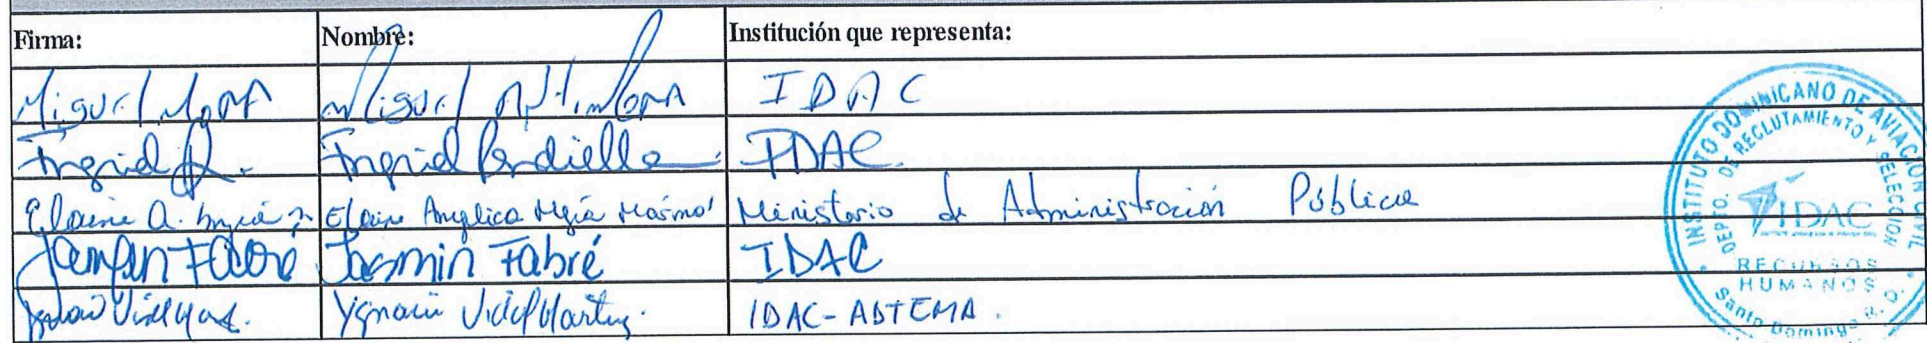 Firma: Nombre: Institución que representa:
Miguel Mora Miguel Mora IDAC
Ingrid Ingrid IDAC.
Elaine A. Elaine Angelica Mejía Mármol Ministerio de Administración Pública
Jasmin Fabré Jasmin Fabré IDAC
Ygnacio Vidal Ygnacio Vidal IDAC-ADTEMA.
INSTITUTO DOMINICANO DE AVIACION CIVIL
DEPTO. DE RECLUTAMIENTO Y SELECCION
IDAC
RECURSOS
HUMANOS
Santo Domingo R. D.